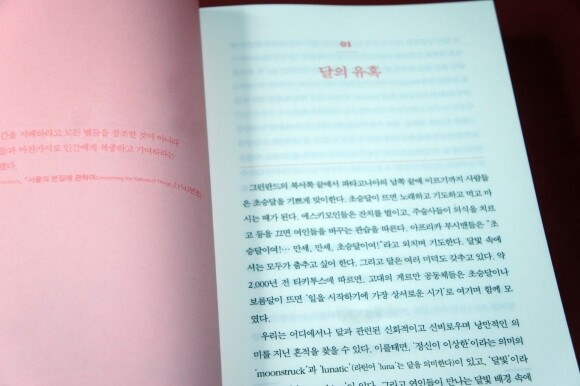 간을 지배하라고 모든 별들을 창조한 것이 아니라
들과 마찬가지로 인간에게 복종하고 기여하라는
였다.
『사물의 본질에 관하여
01
달의 유혹
그린란드의 북서쪽 끝에서 파타고니아의 남쪽 끝에 이르기까지 사람들
은 초승달을 기쁘게 맞이한다. 초승달이 뜨면 노래하고 기도하고 먹고 마
시는 때가 된다. 에스키모인들은 잔치를 벌이고, 주술사들이 의식을 치르
고 등을 끄면 여인들을 바꾸는 관습을 따른다. 아프리카 부시맨들은 "초
승달이여!… 만세, 만세, 초승달이여!"라고 외치며 기도한다. 달빛 속에
서는 모두가 춤추고 싶어 한다. 그리고 달은 여러 미덕도 갖추고 있다. 약
2,000년 전 타키투스에 따르면, 고대의 게르만 공동체들은 초승달이나
보름달이 뜬 '일을 시작하기에 가장 상서로운 시기'로 여기며 함께 모
였다.
우리는 어디에서나 달과 관련된 신화적이고 신비로우며 낭만적인 의
미를 지닌 흔적을 찾을 수 있다. 이를테면, '정신이 이상한'이라는 의미의
'moonstruck'과 'lunatic'(라틴어 'luna'는 달을 의미한다)이 있고, '달빛'이라
이 있다. 그리고 연인들이 만나는 달빛 배경 속에